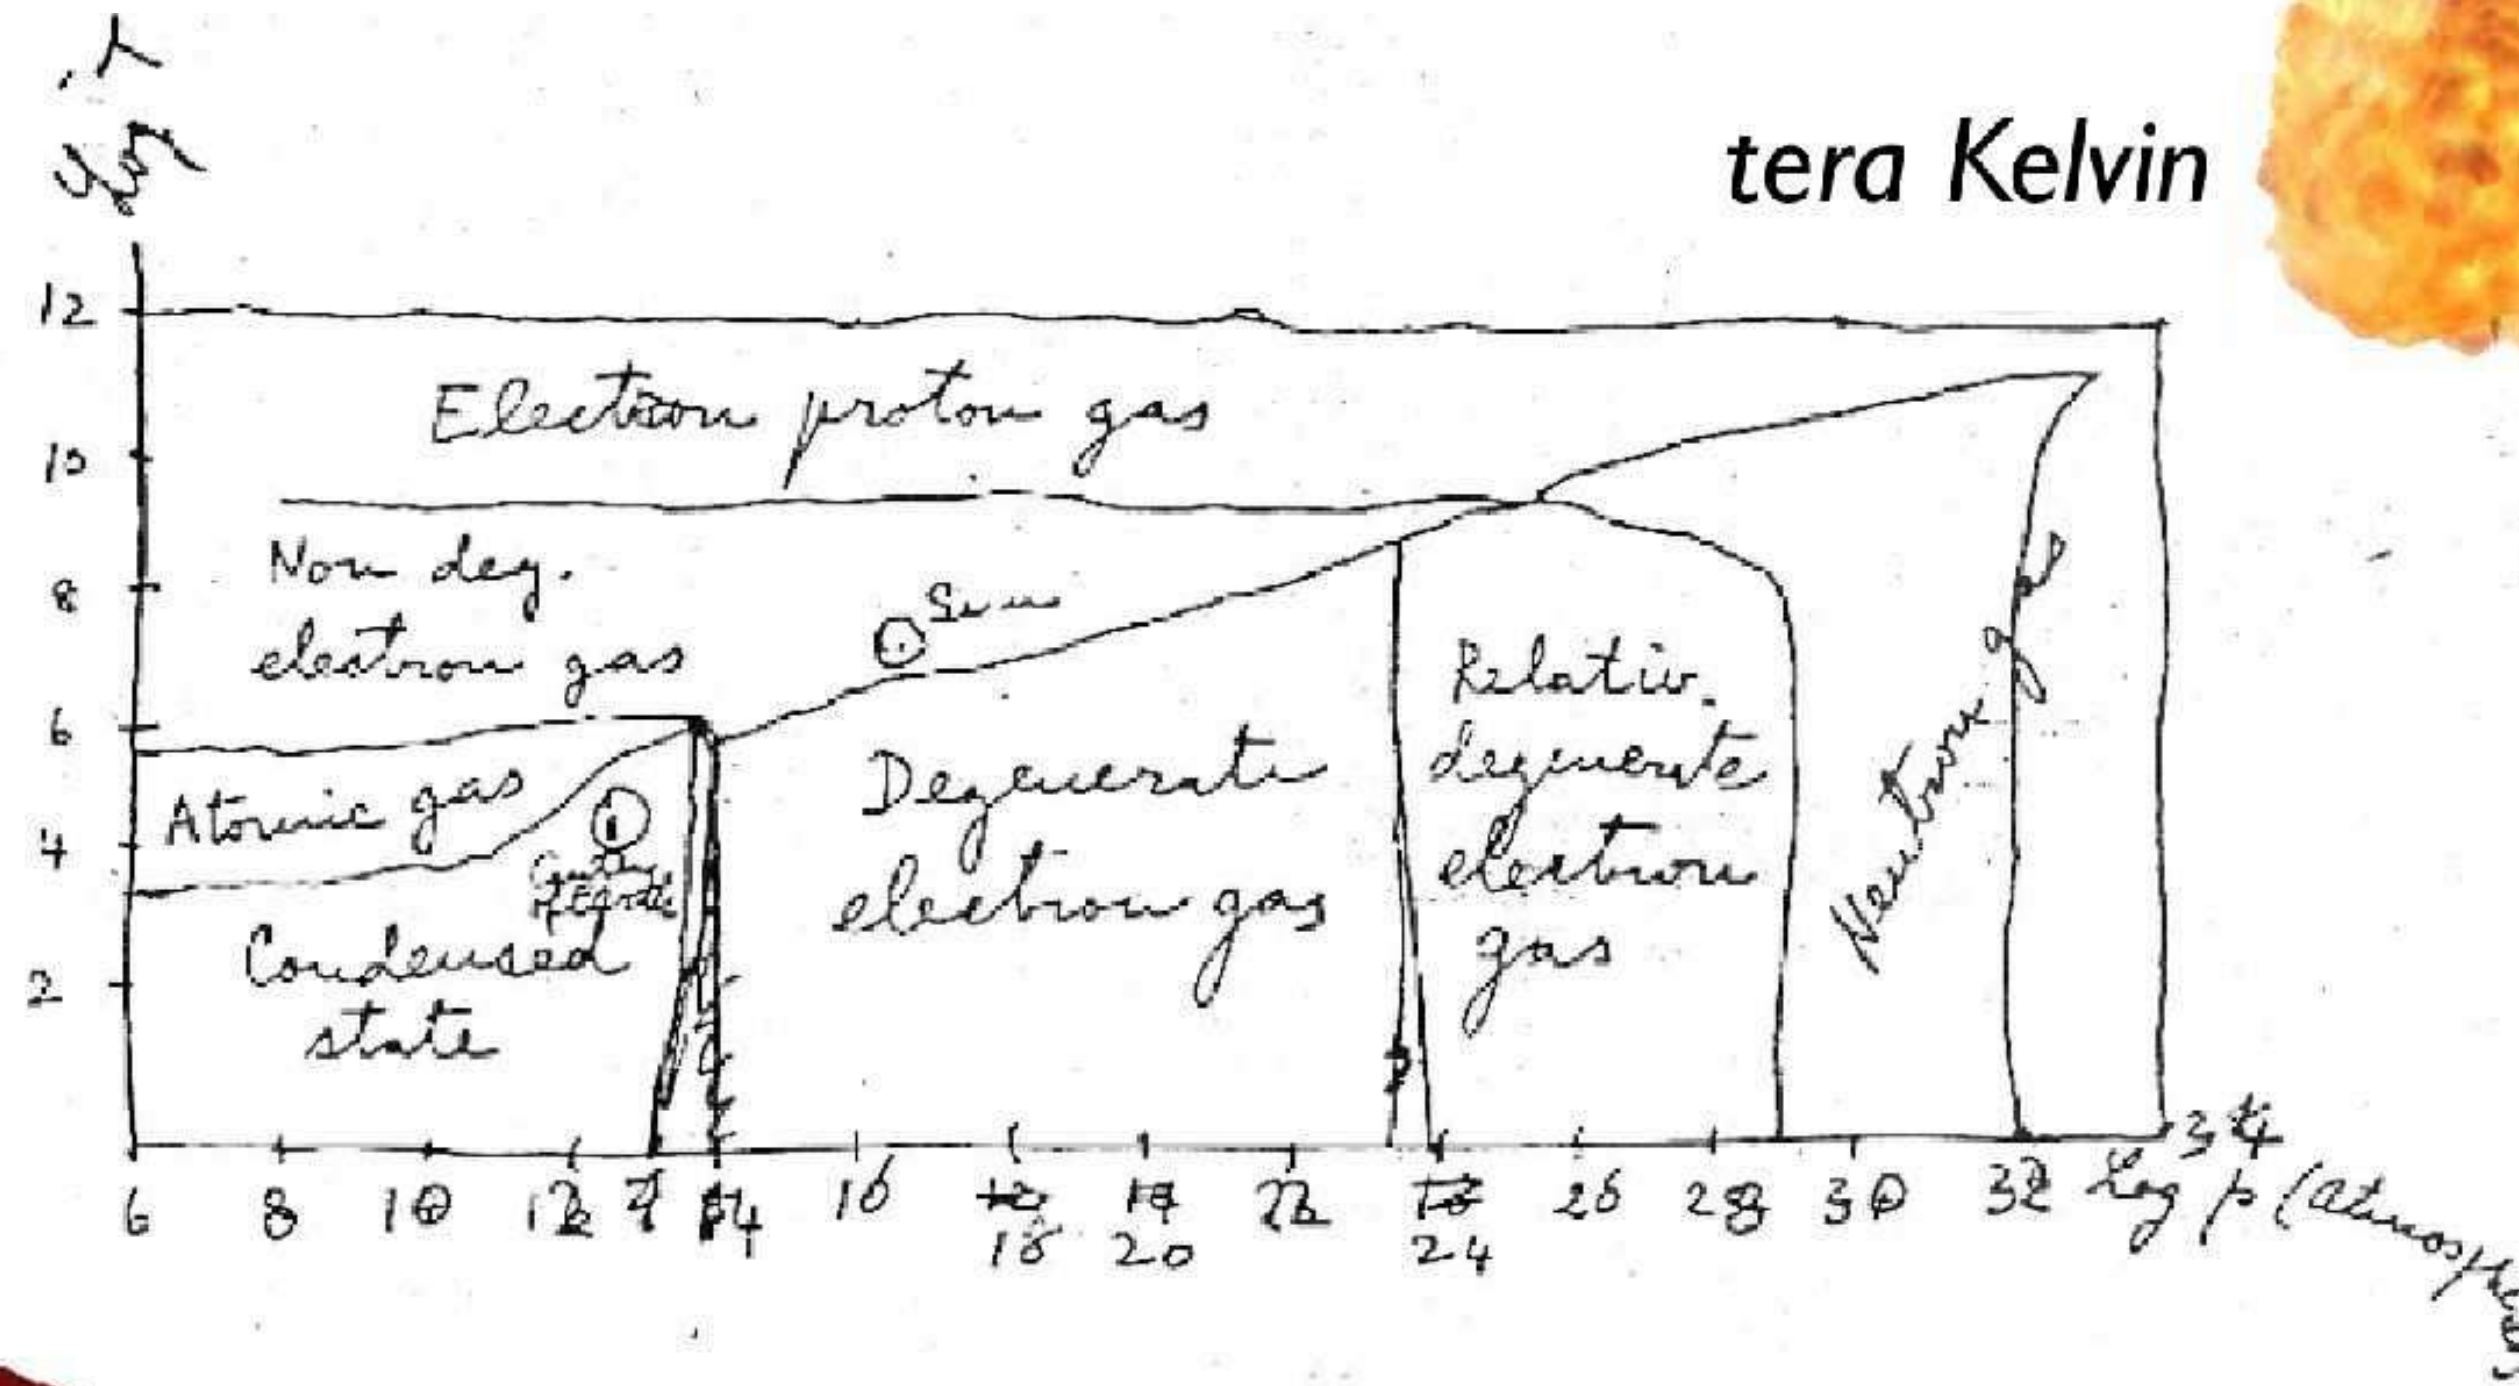 Log T
tera Kelvin
12
Electron proton gas
10
Non deg.
electron gas
8
Sun
6
Atomic gas
4
Condensed
state
2
Degenerate
electron gas
Relativ.
degenerate
electron
gas
Neutron gas
6 8 10 12 14 16 18 20 22 24 26 28 30 32 34
Log p (atmospheres